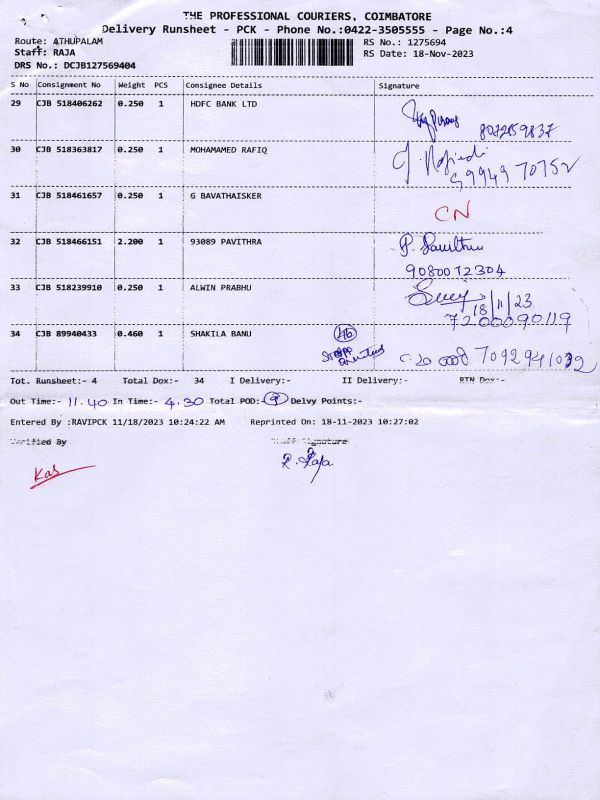 THE PROFESSIONAL COURIERS, COIMBATORE
Delivery Runsheet - PCK - Phone No.:0422-3505555 - Page No.:4
Route: ATHUPALAM RS No.: 1275694
Staff: RAJA RS Date: 18-Nov-2023
DRS No.: DCJB127569404
S No Consignment No Weight PCS Consignee Details Signature
29 CJB 518406262 0.250 1 HDFC BANK LTD
30 CJB 518363817 0.250 1 MOHAMAMED RAFIQ
99949 70752
31 CJB 518461657 0.250 1 G BAVATHAISKER
CN
32 CJB 518466151 2.200 1 93089 PAVITHRA P. Pavithra
9080012304
33 CJB 518239910 0.250 1 ALWIN PRABHU
18/11/23
7200090119
34 CJB 89940433 0.460 1 SHAKILA BANU 46
Tot. Runsheet:- 4 Total Dox:- 34 I Delivery:- II Delivery:- RTN Dox:-
Out Time:- 11.40 In Time:- 4.30 Total POD:- 9 Delvy Points:-
Entered By :RAVIPCK 11/18/2023 10:24:22 AM Reprinted On: 18-11-2023 10:27:02
Verified By Staff Signature
R. Raja